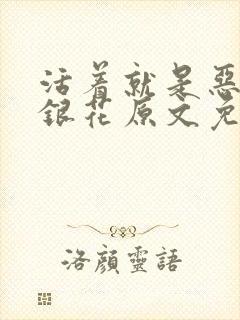 活着就是恶
银花原文免
洛顔靈語